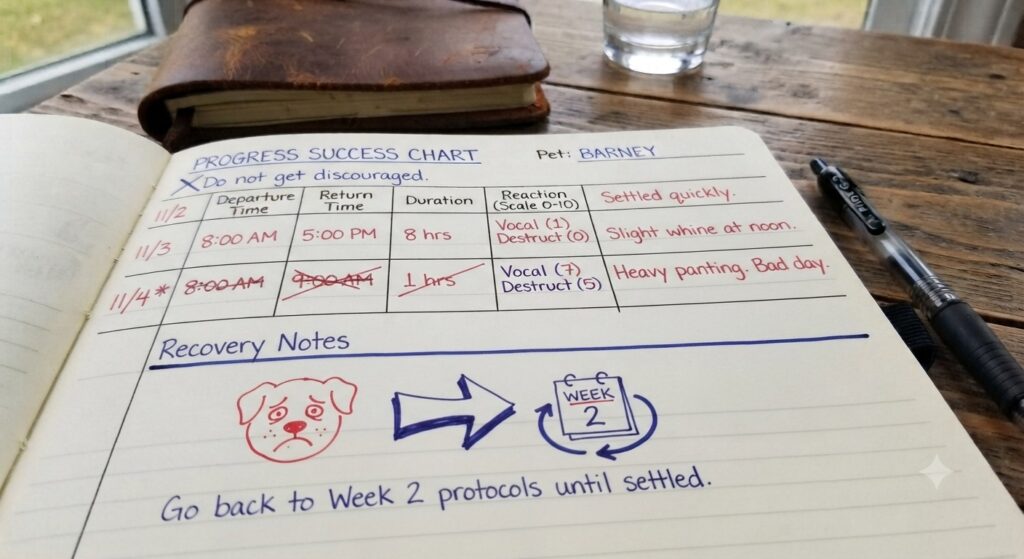 PROGRESS SUCCESS CHART Pet: BARNEY
X Do not get discouraged.
11/2 Departure Time Return Time Duration Reaction (Scale 0-10) Settled quickly.
11/3 8:00 AM 5:00 PM 8 hrs Vocal (1) Destruct (0) Slight whine at noon.
11/4* 8:00 AM 9:00 AM 1 hrs Vocal (7) Destruct (5) Heavy panting. Bad day.
Recovery Notes
WEEK
2
Go back to Week 2 protocols until settled.